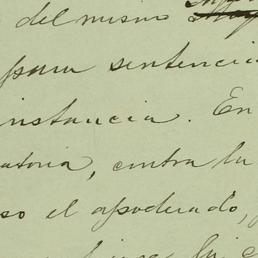 del mismo
para sentencia
instancia. En
atoria, contra la
so el apoderado,